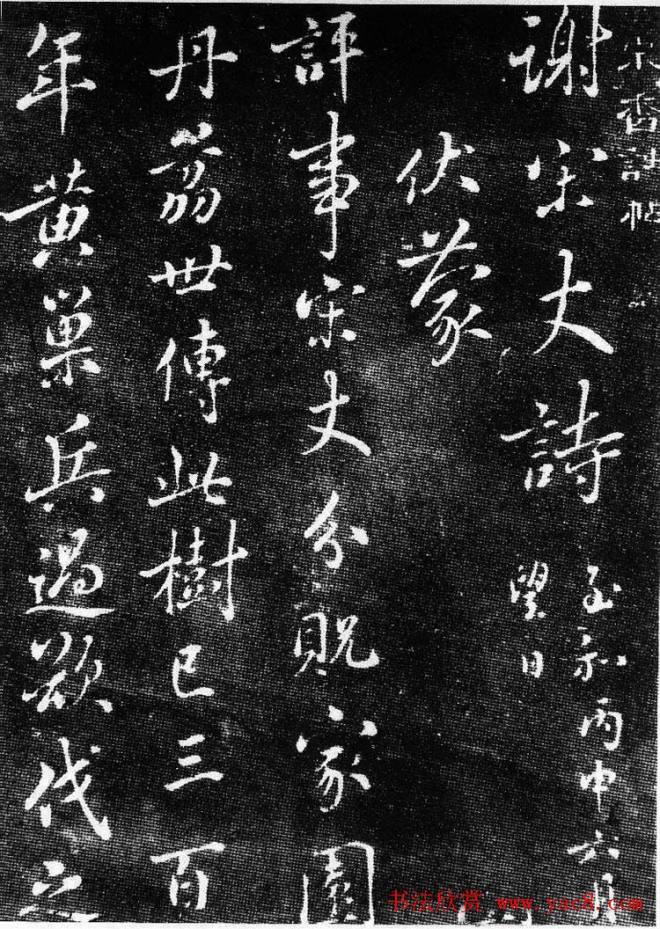 宋香詩帖
謝宋丈詩
至和丙申六月
望日
伏蒙
評事宋丈分貺家園
丹荔世傳此樹已三百
年黄巢兵過欲伐之
书法欣赏 www.yac8.com